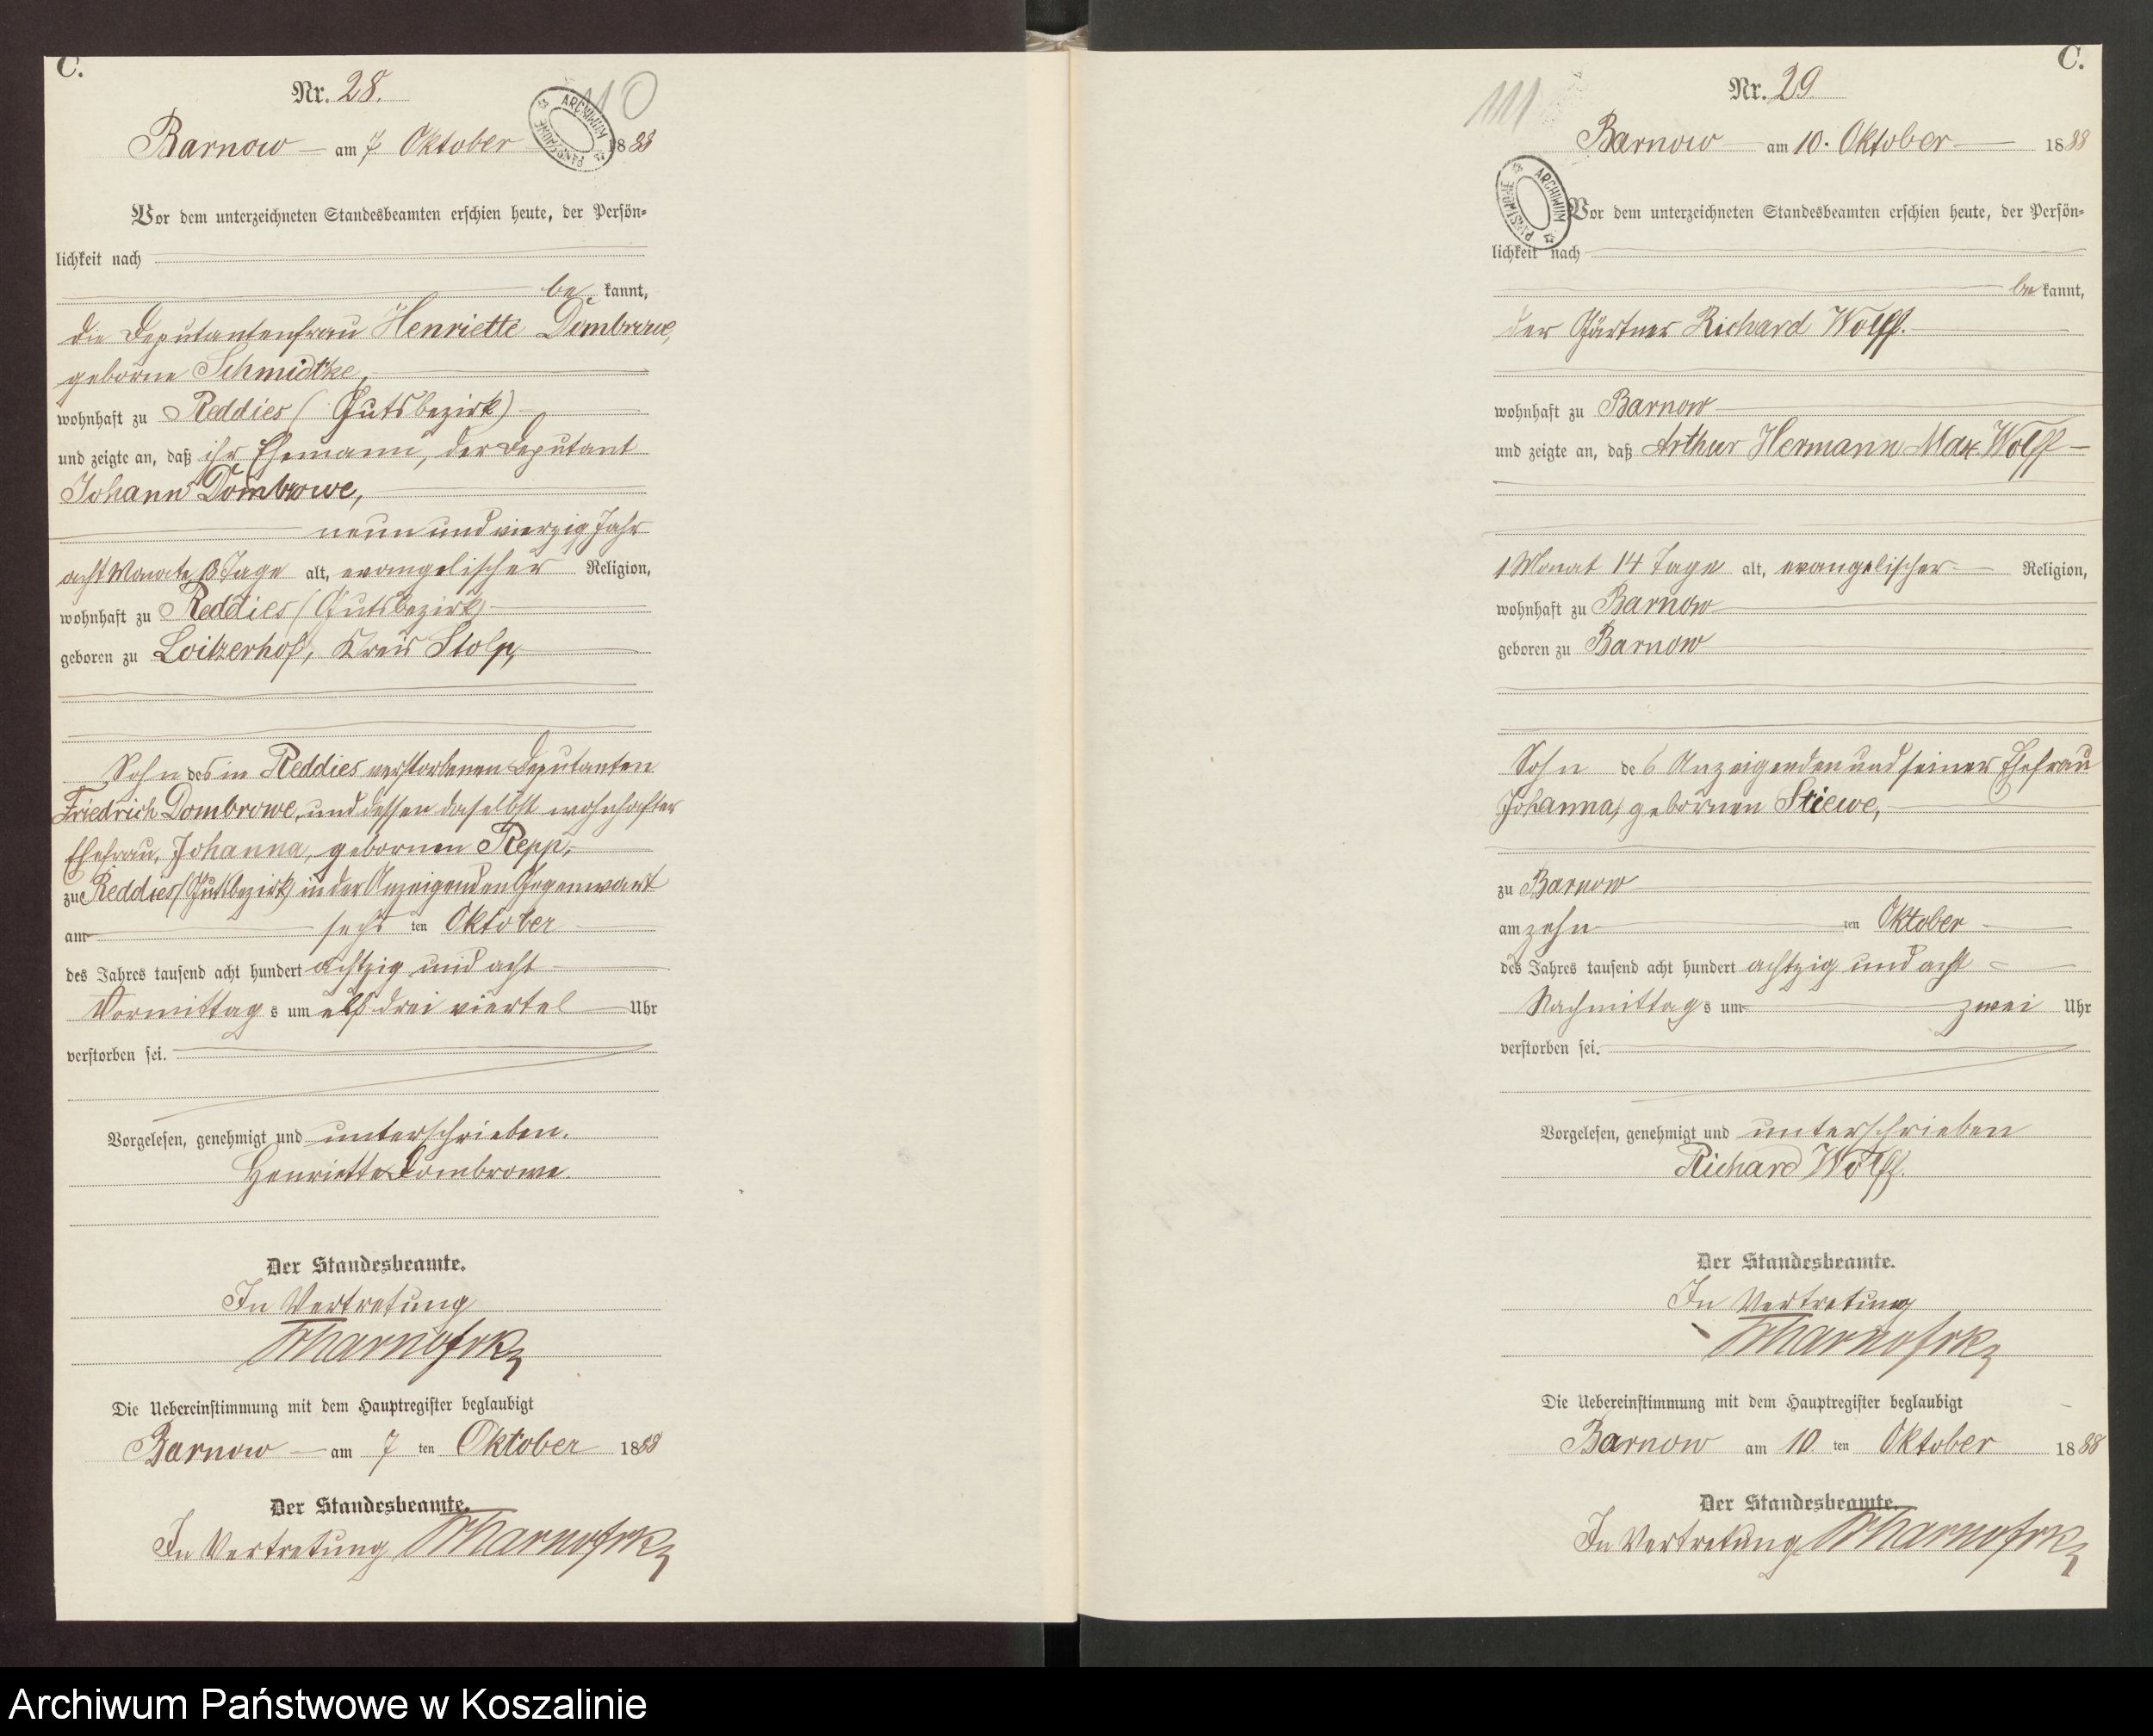 C.
Nr. 28.
110
ARCHIWUM PAŃSTWOWE
Barnow am 7. Oktober 1888
Vor dem unterzeichneten Standesbeamten erschien heute, der Persön-
lichkeit nach
be kannt,
die Deputantenfrau Henriette Dombrowe,
geborne Schmidtke,
wohnhaft zu Reddies (Gutsbezirk)
und zeigte an, daß ihr Ehemann, der Deputant
Johann Dombrowe,
neun und vierzig Jahr
acht Monate Tage alt, evangelischer Religion,
wohnhaft zu Reddies (Gutsbezirk)
geboren zu Loitzerhof, Kreis Stolp,
Sohn des in Reddies verstorbenen Deputanten
Friedrich Dombrowe, und dessen daselbst wohnhafter
Ehefrau, Johanna, gebornen Repp,
zu Reddies (Gutsbezirk) in der Anzeigenden Gegenwart
am sechs ten Oktober
des Jahres tausend acht hundert achtzig und acht
Vormittag s um elf drei viertel Uhr
verstorben sei.
Vorgelesen, genehmigt und unterschrieben.
Henriette Dombrowe.
Der Standesbeamte.
In Vertretung
Die Uebereinstimmung mit dem Hauptregister beglaubigt
Barnow am 7 ten Oktober 1888
Der Standesbeamte.
In Vertretung
C.
Nr. 29
111
ARCHIWUM PAŃSTWOWE
Barnow am 10. Oktober 1888
Vor dem unterzeichneten Standesbeamten erschien heute, der Persön-
lichkeit nach
be kannt,
der Gärtner Richard Wolff.
wohnhaft zu Barnow
und zeigte an, daß Arthur Hermann Max Wolff
1 Monat 14 Tage alt, evangelischer Religion,
wohnhaft zu Barnow
geboren zu Barnow
Sohn des Anzeigenden und seiner Ehefrau
Johanna, gebornen Stiewe,
zu Barnow
am zehn ten Oktober
des Jahres tausend acht hundert achtzig und acht
Nachmittag s um zwei Uhr
verstorben sei.
Vorgelesen, genehmigt und unterschrieben
Richard Wolff.
Der Standesbeamte.
In Vertretung
Die Uebereinstimmung mit dem Hauptregister beglaubigt
Barnow am 10 ten Oktober 1888
Der Standesbeamte.
In Vertretung
Archiwum Państwowe w Koszalinie